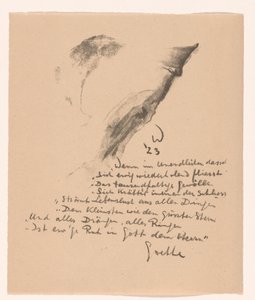 W
'23
Wenn im Unendlichen dasselbe
Sich wiederholend fliesst
Das tausendfältige Gewölbe
Sich kräftig ineinander schliesst
"Strömt Lebenslust aus allen Dingen
"Dem kleinsten wie dem grössten Stern
"Und alles Drängen, alles Ringen
"Ist ew'ge Ruh in Gott dem Herrn"
Goethe